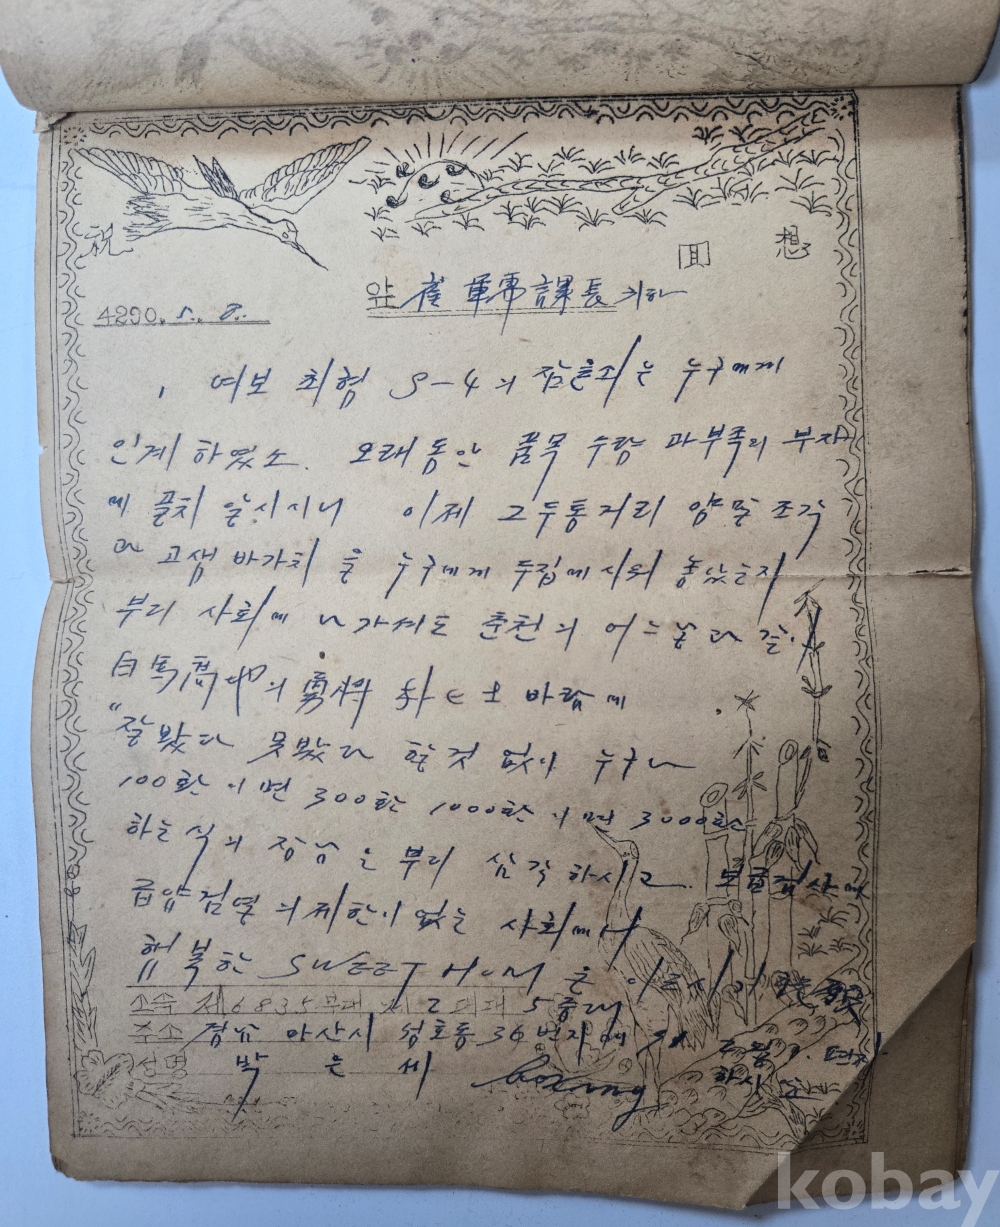 祝
回 想
앞 崔 軍需課長 귀하
4290. 5. 8.
여보 최형 S-4의 자물쇠는 누구에게
인계 하였소. 오래동안 품목 수량 과부족의 부자
에 골치 앓시시니 이제 그 두통거리 양말 조각
과 고생 바가지를 누구에게 두집에 시워 놓았는지
부디 사회에 나가셔도 춘천의 어느날과 같이
白馬高地의 勇将 바람에
"잘 봤다 못 봤다 할것 없이 누구나
100환이면 300환 1000환이면 3000환
하는 식의 장남은 부디 삼각하시고. 보급검사에
급양검열의 제한이 없는 사회에서
행복한 SWEET HOM을 이루시기
소속 제6835부대 제2대대 5중대
주소 경남 마산시 성호동 36번지에 편지
성명 박 은 하시
kobay